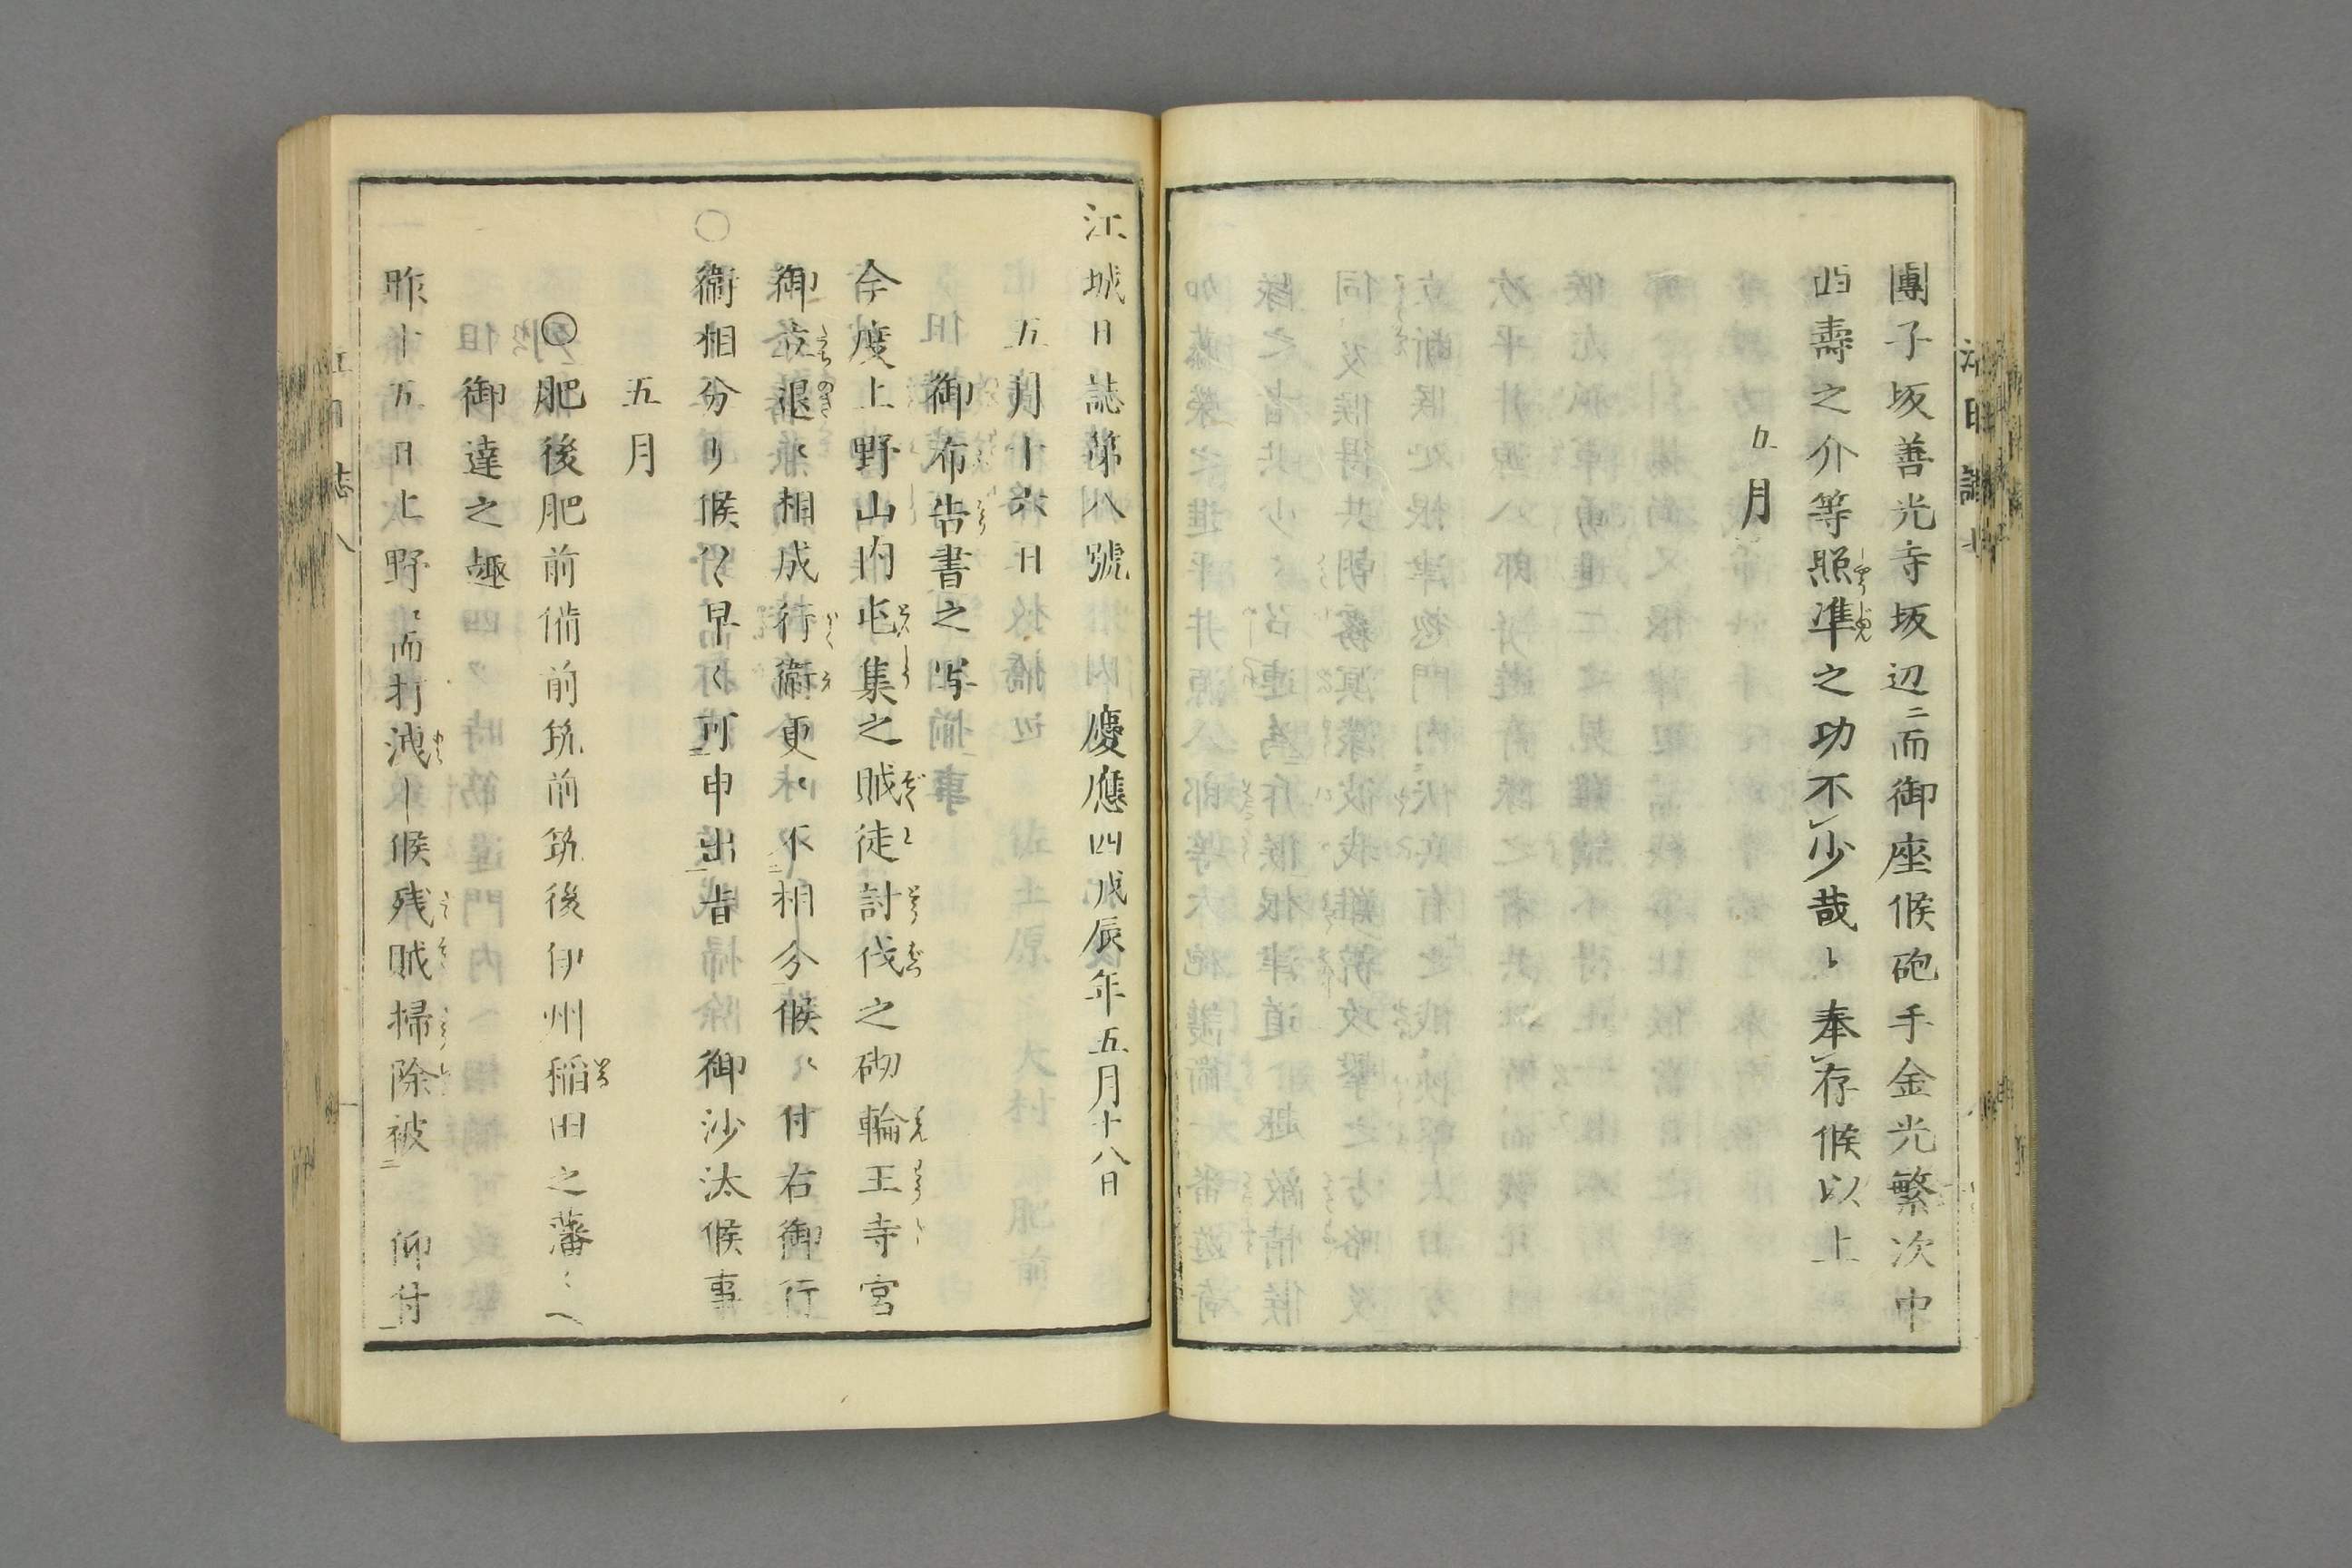 團子坂善光寺坂辺ニ而御座候砲手金光繁次中
西壽之介等照準之功不少哉ト奉存候以上
五月
江城日誌第八號 慶應四戊辰年五月十八日
五月十六日
御布告書之写
今度上野山内屯集之賊徒討伐之砌輪王寺宮
御立退ニ相成行衛更ニ不相分候ニ付右御行
衛相分リ候ハヽ早々可申出旨御沙汰候事
五月
◯肥後肥前備前筑前筑後伊州稲田之藩々へ
御達之趣
昨十五日上野ニ而打洩シ候残賊掃除被 仰付